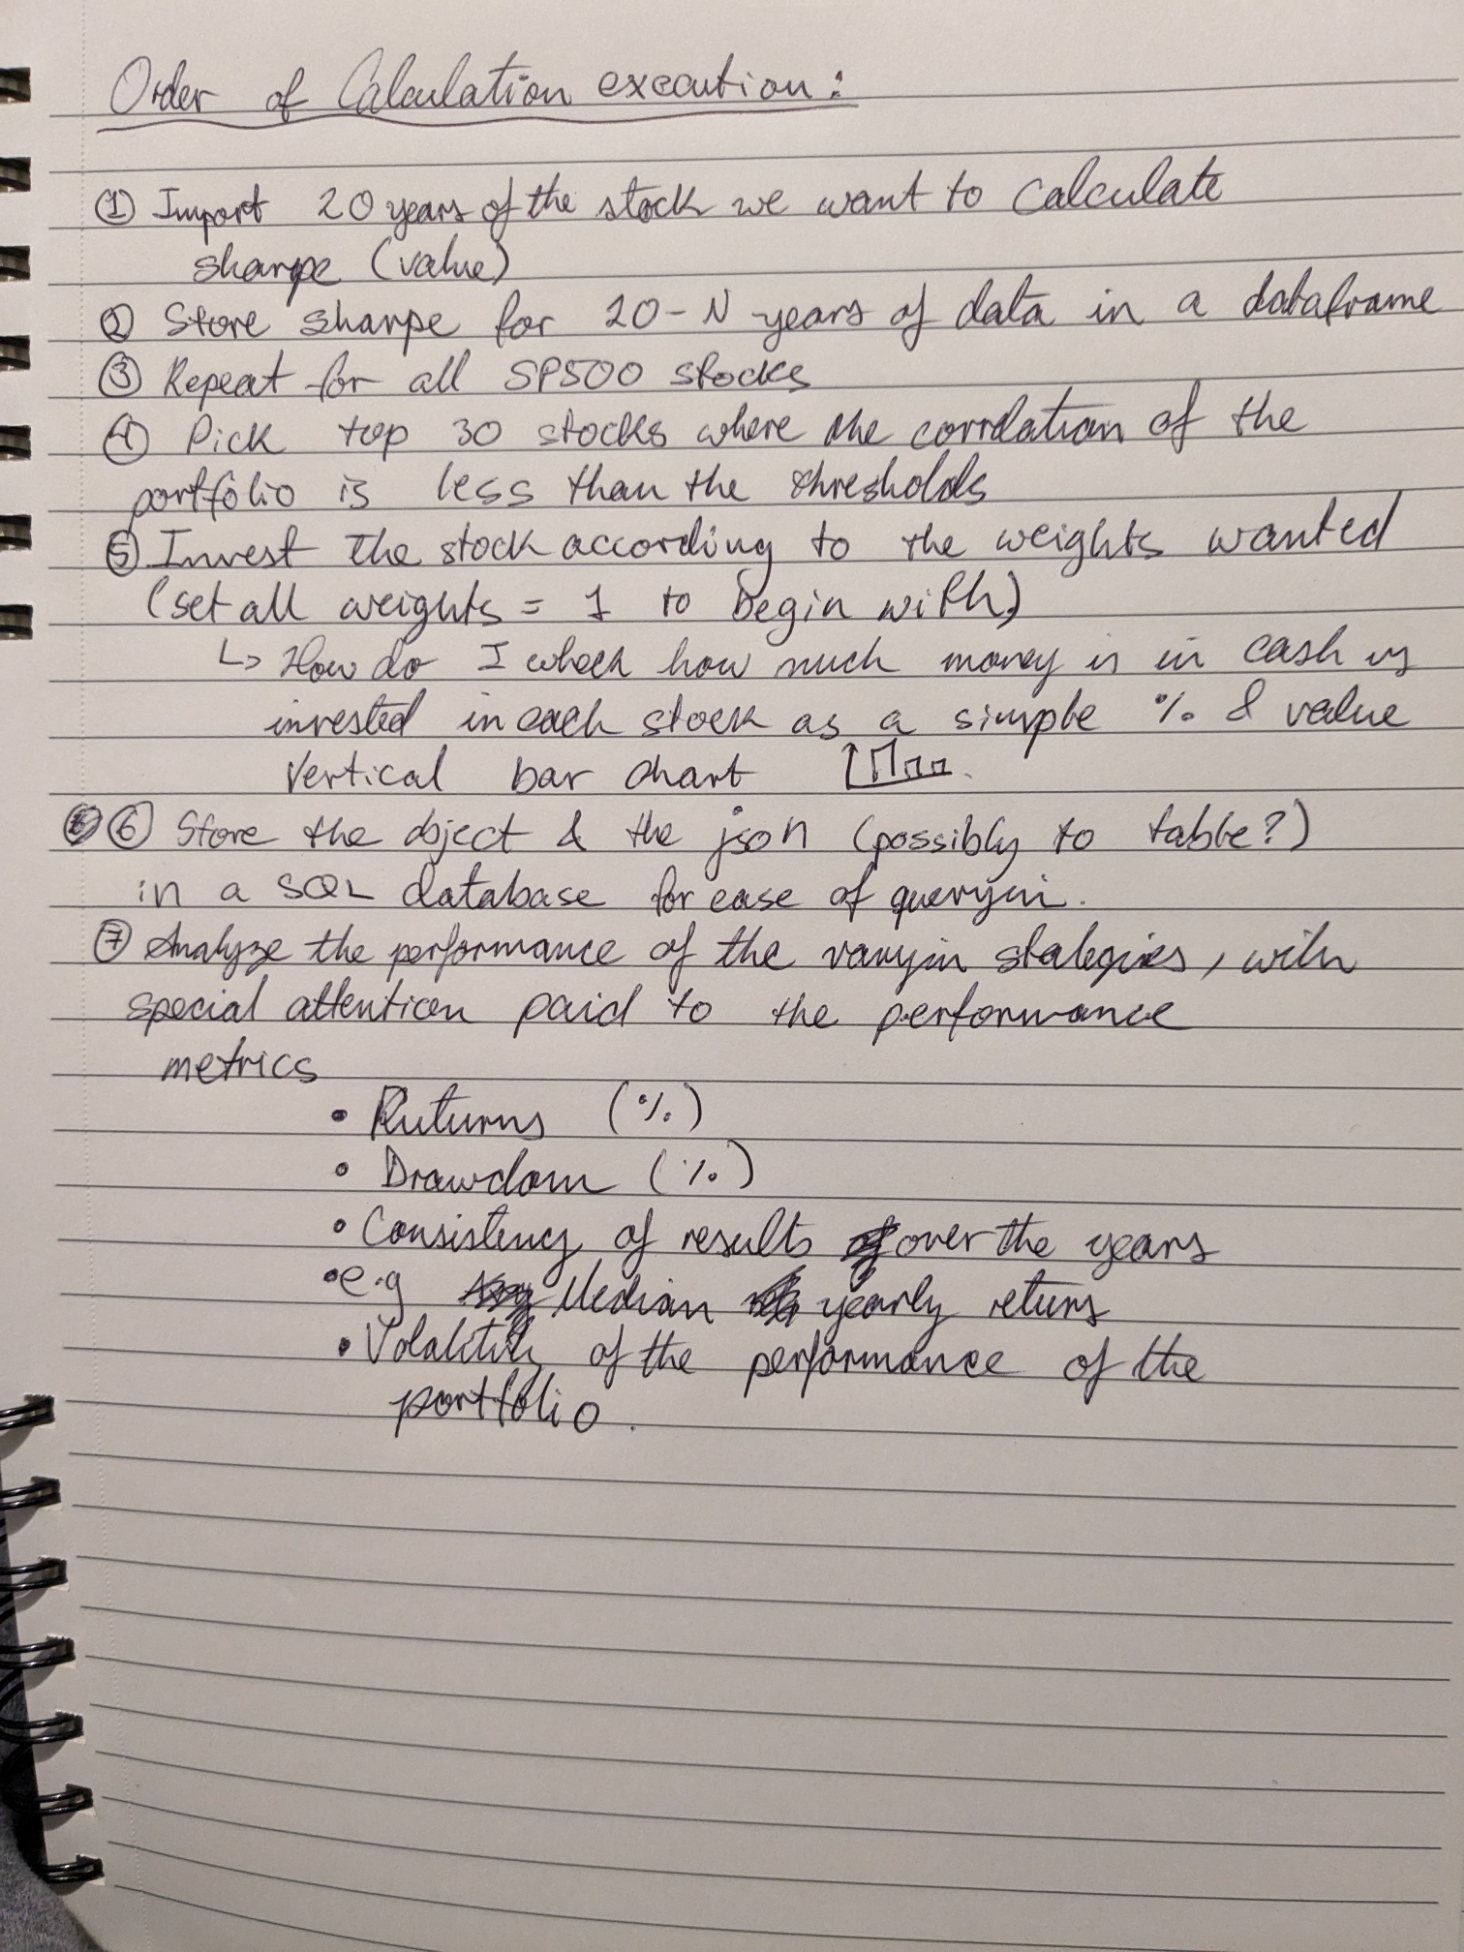 Order of Calculation execution:
① Import 20 years of the stock we want to calculate
sharpe (value)
② Store sharpe for 20-N years of data in a dataframe
③ Repeat for all SP500 stocks
④ Pick top 30 stocks where the correlation of the
portfolio is less than the thresholds
⑤ Invest the stock according to the weights wanted
(set all weights = 1 to begin with)
↳ How do I check how much money is in cash vs
invested in each stock as a simple % & value
vertical bar chart
⑥ Store the object & the json (possibly to table?)
in a SQL database for ease of queryin.
⑦ Analyze the performance of the varyin stategies, with
special attention paid to the performance
metrics
• Returns (%)
• Drawdown (%)
• Consistency of results over the years
• e.g Median yearly returns
• Volatility of the performance of the
portfolio.